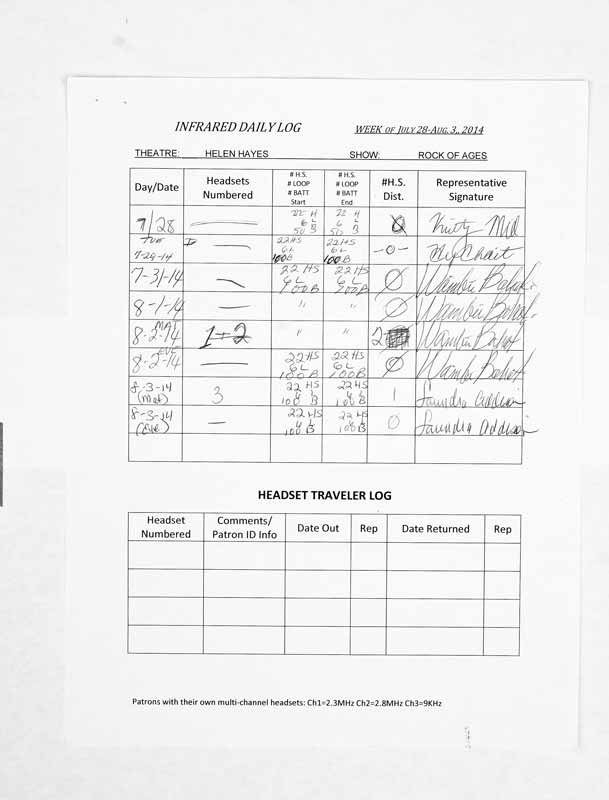 INFRARED DAILY LOG WEEK OF JULY 28-AUG. 3,, 2014
THEATRE: HELEN HAYES SHOW: ROCK OF AGES
Day/Date Headsets Numbered # H.S. # LOOP # BATT Start # H.S. # LOOP # BATT End #H.S. Dist. Representative Signature
7/28 — 22 H 6 L 50 B 22 H 6 L 50 B 0
TUE 7-29-14 — 22HS 6L 100B 22HS 6L 100B -0-
7-31-14 — 22 HS 6 L 100B 22 HS 6 L 100B 0
8-1-14 — " " 0
8-2-14 MAT 1+2 " " 2
8-2-14 EVE — 22HS 6L 100B 22HS 6L 100B 0
8-3-14 (Mat) 3 22 HS L 100 B 22HS L 100 B 1 Saundra Addison
8-3-14 (Eve) — 22 HS L 100 B 22 HS L 100 B 0 Saundra Addison
HEADSET TRAVELER LOG
Headset Numbered Comments/ Patron ID Info Date Out Rep Date Returned Rep
Patrons with their own multi-channel headsets: Ch1=2.3MHz Ch2=2.8MHz Ch3=9KHz